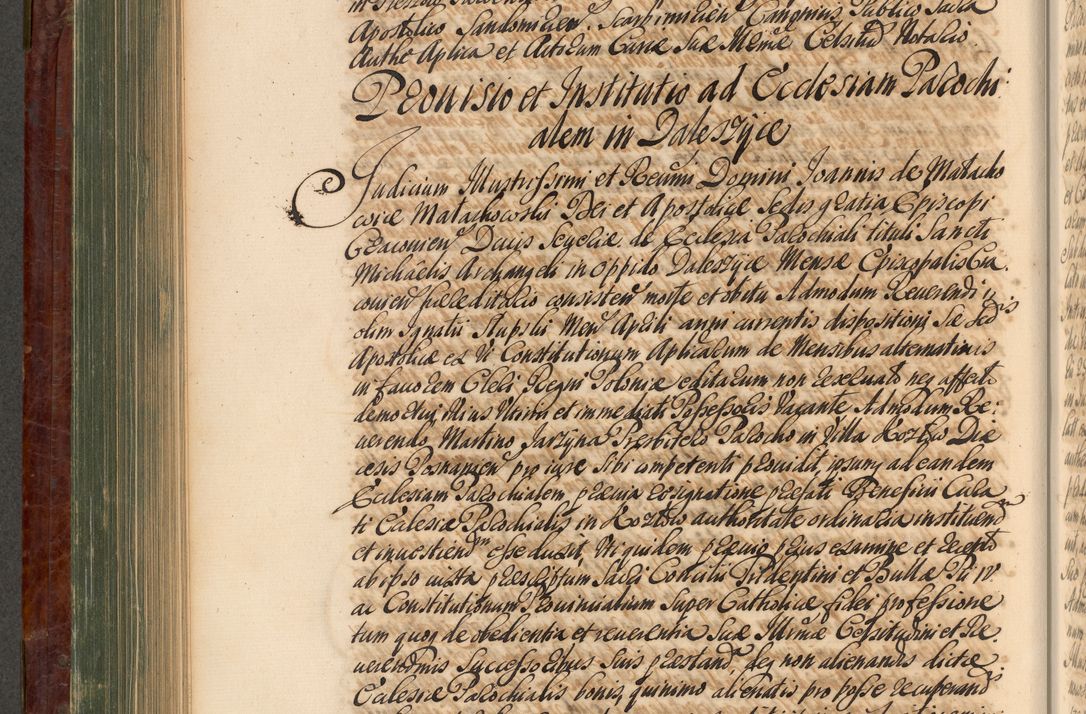 Apostolico Sandomirien. Scarbimirien Canonius Publico Sacra
Authe Aplica et Acticum Curiæ Suæ Illmæ Celsitud Notario.
Prouisio et Institutio ad Ecclesiam Parochi:
alem in Daleszÿce
Judicium Illustrissimi et Reumi Domini Joannis de Małacho
wice Małachowski Dei et Apostolicæ Sedis gratia Episcopi
Cracouien Ducis Seueriæ de Ecclesia Parochiali tituli Sancti
Michaelis Archangeli in oppido Daleszÿce Mensæ Episcopalis Cra
couien hæreditario consisten morte et obitu Admodum Reuerendi
olim Ignatii Słupski Men Aprili anni currentis dispositioni Sæ Sedis
Apostolicæ ex Vi Constitutionum Aplicarum de Mensibus alternatiuis
in fauorem Cleri Regni Poloniæ editarum non reseruato neq affecto
demortuj illius Vltimi et immediati Possessoris Vacante Admodum Re:
uerendo Martino Jarzyna Presbitero Parocho in Villa Kozłow Diæ
cesis Posnanien pro iure sibi competenti prouidit, ipsumq ad eandem
Ecclesiam Parochialem, præuia resignatione præfati Beneficii Cura
ti Ecclesiæ Parochialis in Kozłow authoritate ordinaria instituend
et inuestiend esse duxit, Vti quidem præuio prius examine et recepto
ab ipso iuxta præscriptum Sacri Concilii Tridentini et Bullæ Pii IV.
ac Constitutionum Prouincialium super Catholicæ fidei professione
tum quoq de obedientia et reuerentia Suæ Illmæ Celsitudini et Re.
uerendmis Successoribus Suis præstand, deq non alienandis dictæ
Ecclesiæ Parochialis bonis, quinimo alienatis pro posse recuperandis